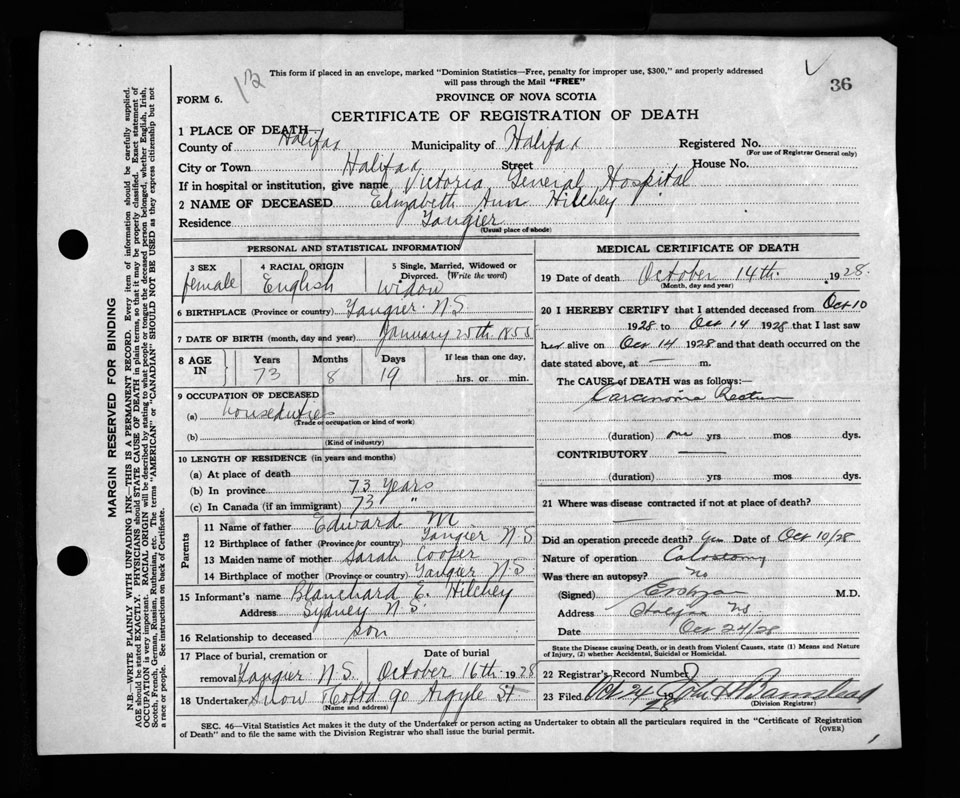 This form if placed in an envelope, marked "Dominion Statistics—Free, penalty for improper use, $300," and properly addressed
will pass through the Mail "FREE"
36
FORM 6.
PROVINCE OF NOVA SCOTIA
CERTIFICATE OF REGISTRATION OF DEATH
1 PLACE OF DEATH
County of Halifax Municipality of Halifax Registered No.
(For use of Registrar General only)
City or Town Halifax Street House No.
If in hospital or institution, give name Victoria General Hospital
2 NAME OF DECEASED Elizabeth Ann Hilchey
Residence Tangier
(Usual place of abode)
PERSONAL AND STATISTICAL INFORMATION
3 SEX 4 RACIAL ORIGIN 5 Single, Married, Widowed or Divorced. (Write the word)
female English Widow
6 BIRTHPLACE (Province or country) Tangier N.S.
7 DATE OF BIRTH (month, day and year) January 25th 1855
8 AGE IN Years Months Days If less than one day,
73 8 19 hrs. or min.
9 OCCUPATION OF DECEASED
(a) houseduties
(Trade or occupation or kind of work)
(b)
(Kind of industry)
10 LENGTH OF RESIDENCE (in years and months)
(a) At place of death
(b) In province 73 Years
(c) In Canada (if an immigrant) 73 "
Parents
11 Name of father Edward M
12 Birthplace of father (Province or country) Tangier N.S.
13 Maiden name of mother Sarah Cooper
14 Birthplace of mother (Province or country) Tangier N.S.
15 Informant's name Blanchard C. Hilchey
Address Sydney N.S.
16 Relationship to deceased son
17 Place of burial, cremation or removal Date of burial
Tangier N.S. October 16th 1928
18 Undertaker Snow & Co Ltd 90 Argyle St
(Name and address)
MEDICAL CERTIFICATE OF DEATH
19 Date of death October 14th 1928.
(Month, day and year)
20 I HEREBY CERTIFY that I attended deceased from Oct 10
1928 to Oct 14 1928 that I last saw
her alive on Oct 14 1928 and that death occurred on the
date stated above, at — m.
The CAUSE of DEATH was as follows:—
Carcinoma Rectum
(duration) one yrs mos dys.
CONTRIBUTORY —
(duration) yrs mos dys.
21 Where was disease contracted if not at place of death?
—
Did an operation precede death? Yes Date of Oct 10/28
Nature of operation Colostomy
Was there an autopsy? No
(Signed) M.D.
Address Halifax NS
Date Oct 24/28
State the Disease causing Death, or in death from Violent Causes, state (1) Means and Nature
of Injury, (2) whether Accidental, Suicidal or Homicidal.
22 Registrar's Record Number
23 Filed Oct 24 1928 John H Barnstead
(Division Registrar)
SEC. 46—Vital Statistics Act makes it the duty of the Undertaker or person acting as Undertaker to obtain all the particulars required in the "Certificate of Registration
of Death" and to file the same with the Division Registrar who shall issue the burial permit.
(OVER)
MARGIN RESERVED FOR BINDING
N.B.—WRITE PLAINLY WITH UNFADING INK—THIS IS A PERMANENT RECORD. Every item of information should be carefully supplied.
AGE should be stated EXACTLY. PHYSICIANS should STATE CAUSE OF DEATH in plain terms, so that it may be properly classified. Exact statement of
OCCUPATION is very important. RACIAL ORIGIN will be described by stating to what people or tongue the deceased person belonged, whether English, Irish,
Scotch, French, German, Russian, Ruthenian, etc. The terms "AMERICAN" or "CANADIAN" SHOULD NOT BE USED as they express citizenship but not
a race or people. See instructions on back of Certificate.